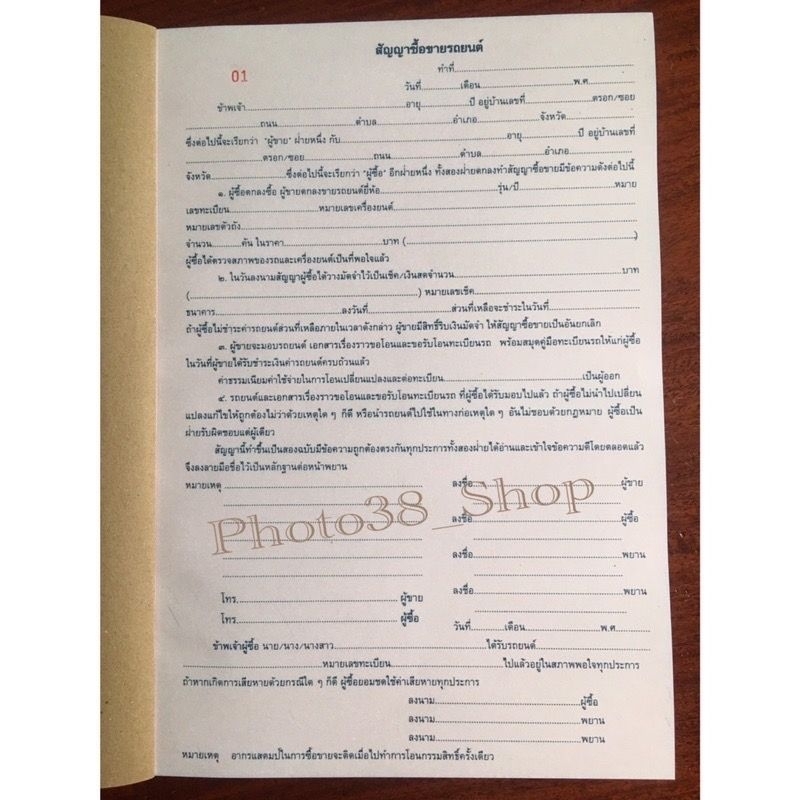 สัญญาซื้อขายรถยนต์
01
ทำที่
วันที่ เดือน พ.ศ.
ข้าพเจ้า อายุ ปี อยู่บ้านเลขที่ ตรอก/ซอย
ถนน ตำบล อำเภอ จังหวัด
ซึ่งต่อไปนี้จะเรียกว่า "ผู้ขาย" ฝ่ายหนึ่ง กับ อายุ ปี อยู่บ้านเลขที่
ตรอก/ซอย ถนน ตำบล อำเภอ
จังหวัด ซึ่งต่อไปนี้จะเรียกว่า "ผู้ซื้อ" อีกฝ่ายหนึ่ง ทั้งสองฝ่ายตกลงทำสัญญาซื้อขายมีข้อความดังต่อไปนี้
๑. ผู้ซื้อตกลงซื้อ ผู้ขายตกลงขายรถยนต์ยี่ห้อ รุ่น/ปี หมาย
เลขทะเบียน หมายเลขเครื่องยนต์
หมายเลขตัวถัง
จำนวน คัน ในราคา บาท ( )
ผู้ซื้อได้ตรวจสภาพของรถและเครื่องยนต์เป็นที่พอใจแล้ว
๒. ในวันลงนามสัญญาผู้ซื้อได้วางมัดจำไว้เป็นเช็ค/เงินสดจำนวน บาท
( ) หมายเลขเช็ค
ธนาคาร ลงวันที่ ส่วนที่เหลือจะชำระในวันที่
ถ้าผู้ซื้อไม่ชำระค่ารถยนต์ส่วนที่เหลือภายในเวลาดังกล่าว ผู้ขายมีสิทธิ์ริบเงินมัดจำ ให้สัญญาซื้อขายเป็นอันยกเลิก
๓. ผู้ขายจะมอบรถยนต์ เอกสารเรื่องราวขอโอนและขอรับโอนทะเบียนรถ พร้อมสมุดคู่มือทะเบียนรถให้แก่ผู้ซื้อ
ในวันที่ผู้ขายได้รับชำระเงินค่ารถยนต์ครบถ้วนแล้ว
ค่าธรรมเนียมค่าใช้จ่ายในการโอนเปลี่ยนแปลงและต่อทะเบียน เป็นผู้ออก
๔. รถยนต์และเอกสารเรื่องราวขอโอนและขอรับโอนทะเบียนรถ ที่ผู้ซื้อได้รับมอบไปแล้ว ถ้าผู้ซื้อไม่นำไปเปลี่ยน
แปลงแก้ไขให้ถูกต้องไม่ว่าด้วยเหตุใด ๆ ก็ดี หรือนำรถยนต์ไปใช้ในทางก่อเหตุใด ๆ อันไม่ชอบด้วยกฎหมาย ผู้ซื้อเป็น
ฝ่ายรับผิดชอบแต่ผู้เดียว
สัญญานี้ทำขึ้นเป็นสองฉบับมีข้อความถูกต้องตรงกันทุกประการทั้งสองฝ่ายได้อ่านและเข้าใจข้อความดีโดยตลอดแล้ว
จึงลงลายมือชื่อไว้เป็นหลักฐานต่อหน้าพยาน
หมายเหตุ ลงชื่อ ผู้ขาย
ลงชื่อ ผู้ซื้อ
Photo38_Shop
ลงชื่อ พยาน
ลงชื่อ พยาน
โทร. ผู้ขาย
โทร. ผู้ซื้อ วันที่ เดือน พ.ศ.
ข้าพเจ้าผู้ซื้อ นาย/นาง/นางสาว ได้รับรถยนต์
หมายเลขทะเบียน ไปแล้วอยู่ในสภาพพอใจทุกประการ
ถ้าหากเกิดการเสียหายด้วยกรณีใด ๆ ก็ดี ผู้ซื้อยอมชดใช้ค่าเสียหายทุกประการ
ลงนาม ผู้ซื้อ
ลงนาม พยาน
ลงนาม พยาน
หมายเหตุ อากรแสตมป์ในการซื้อขายจะติดเมื่อไปทำการโอนกรรมสิทธิ์ครั้งเดียว